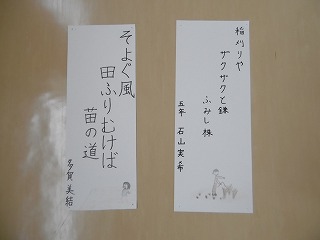 稲刈りや
ザクザクと鎌
ふみし株
五年 石山実希
そよぐ風
田ふりむけば
苗の道
多賀美結